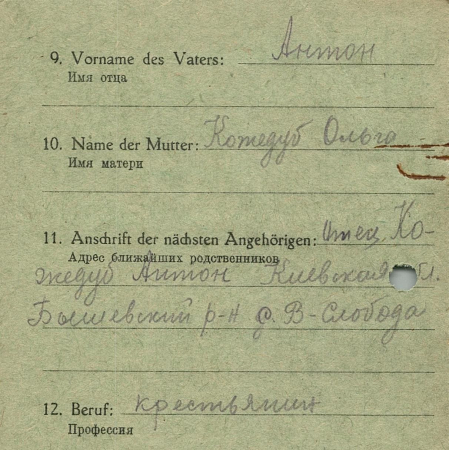 9. Vorname des Vaters: Антон
Имя отца
10. Name der Mutter: Кожедуб Ольга
Имя матери
11. Anschrift der nächsten Angehörigen: Отец Ко-
Адрес ближайших родственников
жедуб Антон Киевская обл.
Бышевский р-н с. В-Слобода
12. Beruf: крестьянин
Профессия